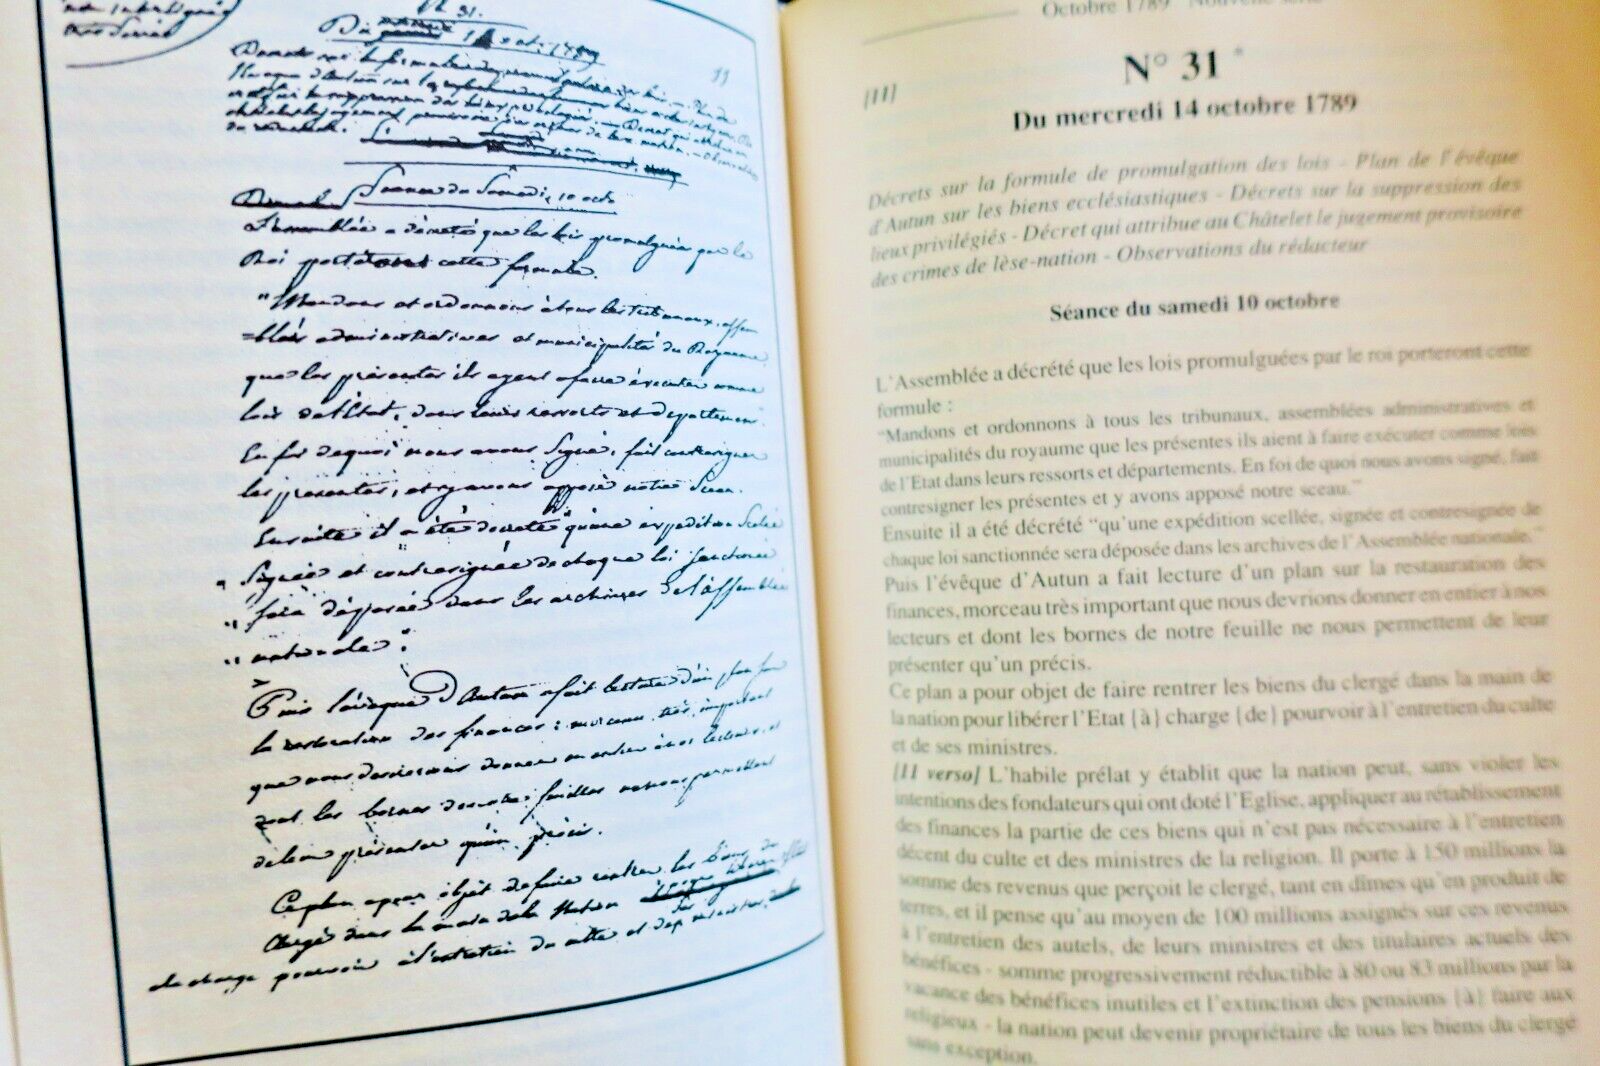 N° 31.
Séance du Samedi, 10 octo
L'assemblée a décrété que les lois promulguées par le
Roi cette formule.
"Mandons et ordonnons à tous les tribunaux, assem
=blées administratives et municipalités du Royaume
que les présentes ils ayent a faire éxécuter comme
lois de l'Etat, dans leurs ressorts et départemens.
En foi de quoi nous avons signé, fait contresigner
les présentes, et y avons apposé notre Sceau.
Ensuite il a été décrété "qu'une expédition Scelée
" Signée et contresignée de chaque loi sanctionnée
" sera déposée dans les archives de l'assemblée
" nationale".
Puis l'évêque d'Autun a fait lecture d'un plan sur
la restauration des finances: morceau très important
que nous devrions donner en entier à nos lecteurs, et
dont les bornes de notre feuille ne nous permettent
de leur présenter qu'un précis.
Ce plan a pour objet de faire rentrer les biens du
Clergé dans la main de la Nation
charge pourvoir à l'entretien du culte et de ministres
Octobre 1789 Nouvelle série
[11]
N° 31 *
Du mercredi 14 octobre 1789
Décrets sur la formule de promulgation des lois - Plan de l'évêque
d'Autun sur les biens ecclésiastiques - Décrets sur la suppression des
lieux privilégiés - Décret qui attribue au Châtelet le jugement provisoire
des crimes de lèse-nation - Observations du rédacteur
Séance du samedi 10 octobre
L'Assemblée a décrété que les lois promulguées par le roi porteront cette
formule :
"Mandons et ordonnons à tous les tribunaux, assemblées administratives et
municipalités du royaume que les présentes ils aient à faire exécuter comme lois
de l'Etat dans leurs ressorts et départements. En foi de quoi nous avons signé, fait
contresigner les présentes et y avons apposé notre sceau."
Ensuite il a été décrété "qu'une expédition scellée, signée et contresignée de
chaque loi sanctionnée sera déposée dans les archives de l'Assemblée nationale."
Puis l'évêque d'Autun a fait lecture d'un plan sur la restauration des
finances, morceau très important que nous devrions donner en entier à nos
lecteurs et dont les bornes de notre feuille ne nous permettent de leur
présenter qu'un précis.
Ce plan a pour objet de faire rentrer les biens du clergé dans la main de
la nation pour libérer l'Etat {à} charge {de} pourvoir à l'entretien du culte
et de ses ministres.
[11 verso] L'habile prélat y établit que la nation peut, sans violer les
intentions des fondateurs qui ont doté l'Eglise, appliquer au rétablissement
des finances la partie de ces biens qui n'est pas nécessaire à l'entretien
décent du culte et des ministres de la religion. Il porte à 150 millions la
somme des revenus que perçoit le clergé, tant en dîmes qu'en produit de
terres, et il pense qu'au moyen de 100 millions assignés sur ces revenus
à l'entretien des autels, de leurs ministres et des titulaires actuels des
bénéfices - somme progressivement réductible à 80 ou 83 millions par la
vacance des bénéfices inutiles et l'extinction des pensions {à} faire aux
religieux - la nation peut devenir propriétaire de tous les biens du clergé
sans exception.